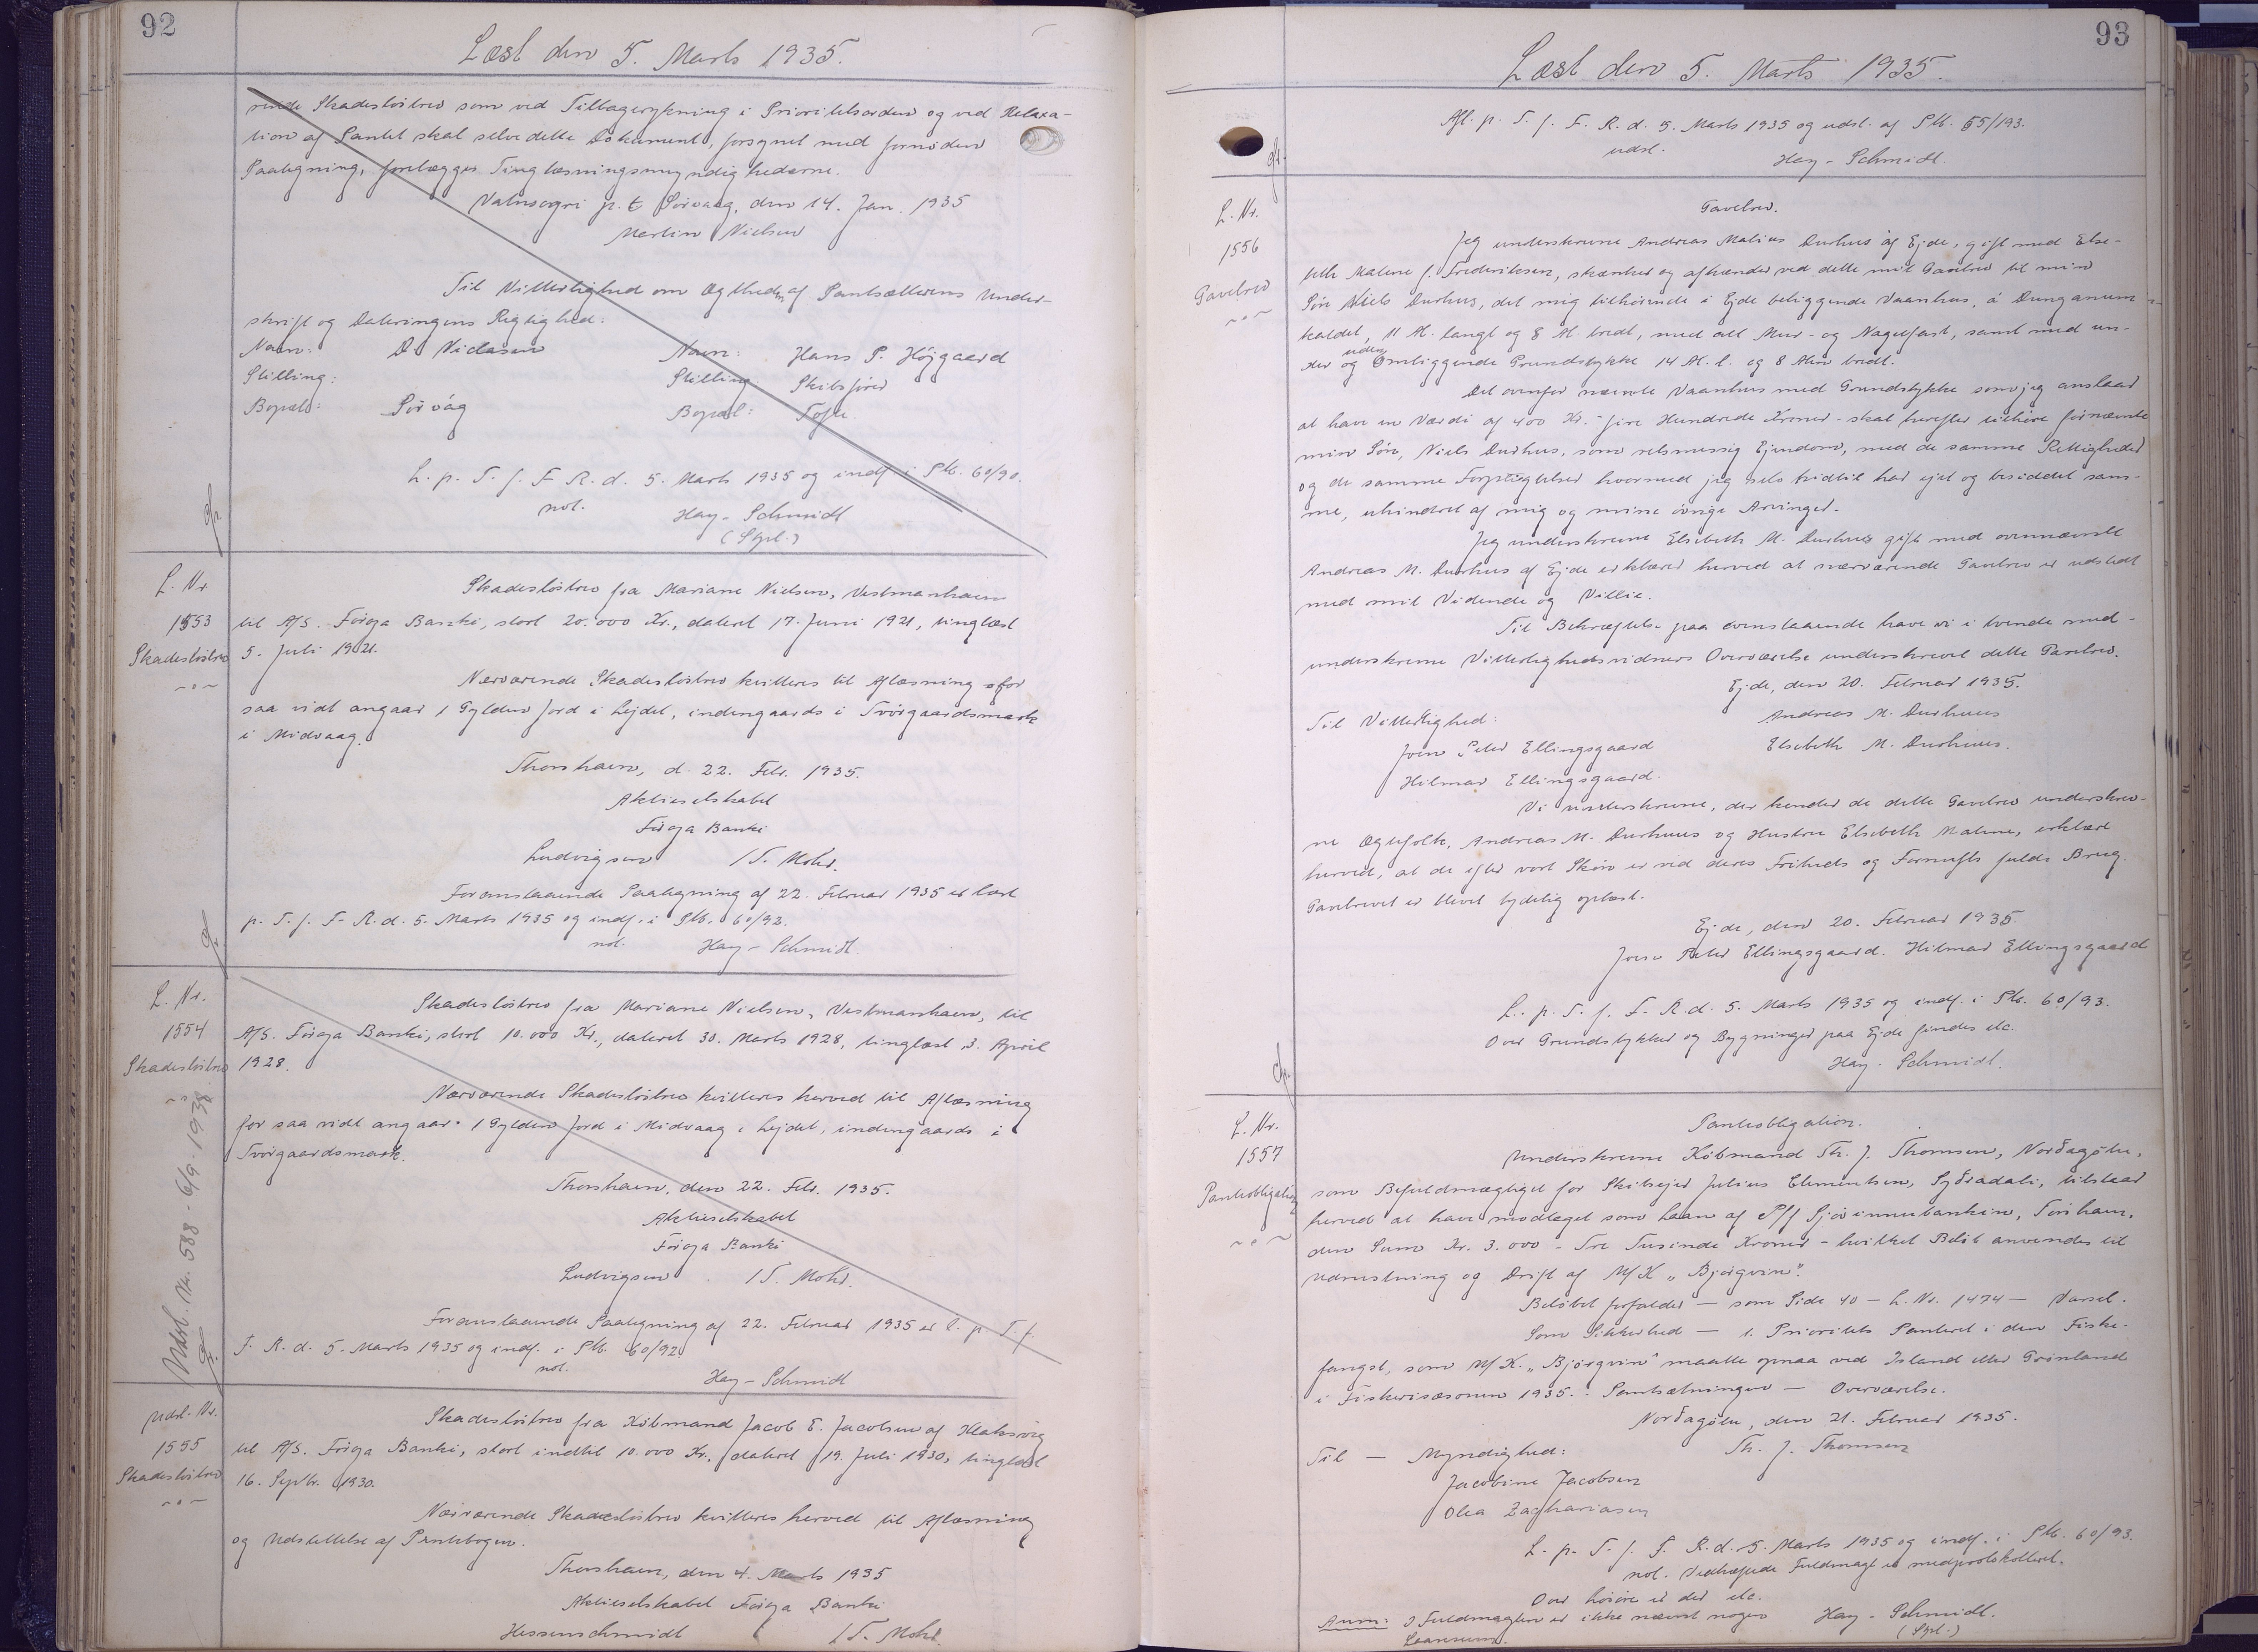 92
Læst den 5. Marts 1935.
rende Skadesløsbrev som ved Tilbagerykning i Prioritetsorden og ved Relaxa-
tion af Pantet skal selve dette Dokument, forsynet med fornøden
Paategning, forelægges Tinglæsningsmyndighederne.
Vatnsoyri p. t. Sørvaag, den 14. Jan. 1935
Martin Nielsen
Til Vitterlighed om Ægtheden af Pantsætterens Under-
skrift og Dateringens Rigtighed:
Navn: D. Niclasen Navn: Hans P. Højgaard
Stilling: Stilling: Skibsfører
Bopæl: Sørvág Bopæl: Tofte.
L. p. T. f. F. R. d. 5. Marts 1935 og indf. i Ptb. 60/90.
not. Hay-Schmidt
(Spl.)
L. Nr.
1553
Skadesløsbrev
Skadesløsbrev fra Mariane Nielsen, Vestmanhavn
til A/S. Føroya Banki, stort 20.000 Kr., dateret 17. Juni 1921, tinglæst
5. Juli 1921.
Nærværende Skadesløsbrev kvitteres til Aflæsning for
saa vidt angaar 1 Gylden Jord i Lejdet, indengaards i Tvørgaardsmark
i Midvaag.
Thorshavn, d. 22. Febr. 1935.
Aktieselskabet
Føroya Banki
Ludvigsen / T. Mohr.
Foranstaaende Paategning af 22. Februar 1935 er læst
p. T. f. F. R. d. 5. Marts 1935 og indf. i Ptb. 60/92.
not. Hay-Schmidt.
L. Nr.
1554
Skadesløsbrev
Udsl. Nr. 588 - 6/9-1938
Skadesløsbrev fra Mariane Nielsen, Vestmanhavn, til
A/S. Føroya Banki, stort 10.000 Kr., dateret 30. Marts 1928, tinglæst 3. April
1928.
Nærværende Skadesløsbrev kvitteres herved til Aflæsning
for saa vidt angaar 1 Gylden Jord i Midvaag i Lejdet, indengaards i
Tvørgaardsmark.
Thorshavn, den 22. Febr. 1935.
Aktieselskabet
Føroya Banki
Ludvigsen / T. Mohr.
Foranstaaende Paategning af 22. Februar 1935 er l. p. T. f.
F. R. d. 5. Marts 1935 og indf. i Ptb. 60/92.
not. Hay-Schmidt
Udsl. Nr.
1555
Skadesløsbrev
Skadesløsbrev fra Købmand Jacob E. Jacobsen af Klaksvig
til A/S. Føroya Banki, stort indtil 10.000 Kr., dateret 19. Juli 1930, tinglæst
16. Septbr. 1930.
Nærværende Skadesløsbrev kvitteres herved til Aflæsning
og Udslettelse af Pantebogen.
Thorshavn, den 4. Marts 1935
Aktieselskabet Føroya Banki
Hessenschmidt / T. Mohr.
93
Læst den 5. Marts 1935.
Afl. p. T. f. F. R. d. 5. Marts 1935 og udsl. af Ptb. 55/193.
udsl. Hay-Schmidt.
L. Nr.
1556
Gavebrev
Gavebrev.
Jeg underskrevne Andreas Matias Durhus af Ejde, gift med Else-
beth Malene f. Frederiksen, skænker og afhænder ved dette mit Gavebrev til min
Søn Niels Durhus, det mig tilhørende i Ejde beliggende Vaanhus, á Dunganum
kaldet, 11 Al. langt og 8 Al. bredt, med alt Mur- og Nagelfast, samt med un-
der og uden Omliggende Grundstykke 14 Al. l. og 8 Alen bredt.
Det ovenfor nævnte Vaanhus med Grundstykke som jeg anslaar
at have en Værdi af 400 Kr. - fire Hundrede Kroner - skal herefter tilhøre førnævnte
min Søn, Niels Durhus, som retsmessig Ejendom, med de samme Rettigheder
og de samme Forpligtelser hvormed jeg selv hidtil har ejet og besiddet sam-
me, uhindret af mig og mine øvrige Arvinger.
Jeg underskrevne Elsebeth M. Durhus gift med ovennævnte
Andreas M. Durhus af Ejde erklærer herved at nærværende Gavebrev er udstedt
med mit Vidende og Villie.
Til Bekræftelse paa ovenstaaende have vi i tvende med-
underskrevne Vitterlighedsvidners Overværelse underskrevet dette Gavebrev.
Ejde, den 20. Februar 1935.
Til Vitterlighed: Andreas M. Durhuus
Joen Peter Ellingsgaard Elsebeth M. Durhuus.
Hilmar Ellingsgaard.
Vi underskrevne, der kender de dette Gavebrev underskrev-
ne Ægtefolk, Andreas M. Durhuus og Hustru Elsebeth Malene, erklære
herved, at de efter vort Skøn er ved deres Friheds og Fornufts fulde Brug.
Gavebrevet er blevet tydelig oplæst.
Ejde, den 20. Februar 1935
Joen Peter Ellingsgaard. Hilmar Ellingsgaard
L. p. T. f. F. R. d. 5. Marts 1935 og indf. i Ptb. 60/93.
Over Grundstykker og Bygninger paa Ejde findes etc.
Hay-Schmidt.
L. Nr.
1557
Panteobligation
Panteobligation.
Underskrevne Købmand Th. J. Thomsen, Norðagøtu,
som Befuldmægtiget for Skibsejer Julius Clementsen, Syðradali, tilstaar
herved at have modtaget som Laan af P/f Sjóvinnubankin, Tórshavn,
den Sum Kr. 3.000 - Tre Tusinde Kroner - hvilket Beløb anvendes til
Udrustning og Drift af M/K "Bjørgvin".
Beløbet forfalder — som Side 40 — L. Nr. 1474 — Varsel.
Som Sikkerhed — 1. Prioritets Panteret i den Fiske-
fangst, som M/K. "Bjørgvin" maatte opnaa ved Island eller Grønland
i Fiskerisæsonen 1935. Pantsætningen — Overværelse.
Norðagøtu, den 21. Februar 1935.
Til — Myndighed: Th. J. Thomsen
Jacobine Jacobsen
Olea Zachariasen
L. p. T. f. F. R. d. 5. Marts 1935 og indf. i Ptb. 60/93.
not. Vedhæftede Fuldmagt er medprotokolleret.
Over Løsøre er der etc.
Anm: I Fuldmagten er ikke nævnt nogen Hay-Schmidt.
Laanesum. (Spl.)